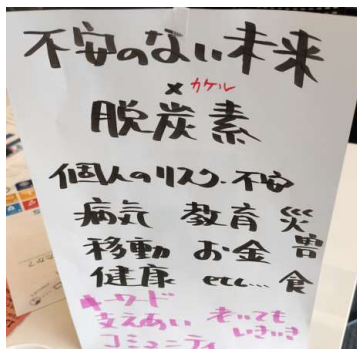 不安のない未来
× カケル
脱炭素
個人のリスク・不安
病気 教育 災害
移動 お金
健康 etc... 食
キーワード
支えあい 老いても
いきいき
コミュニティ